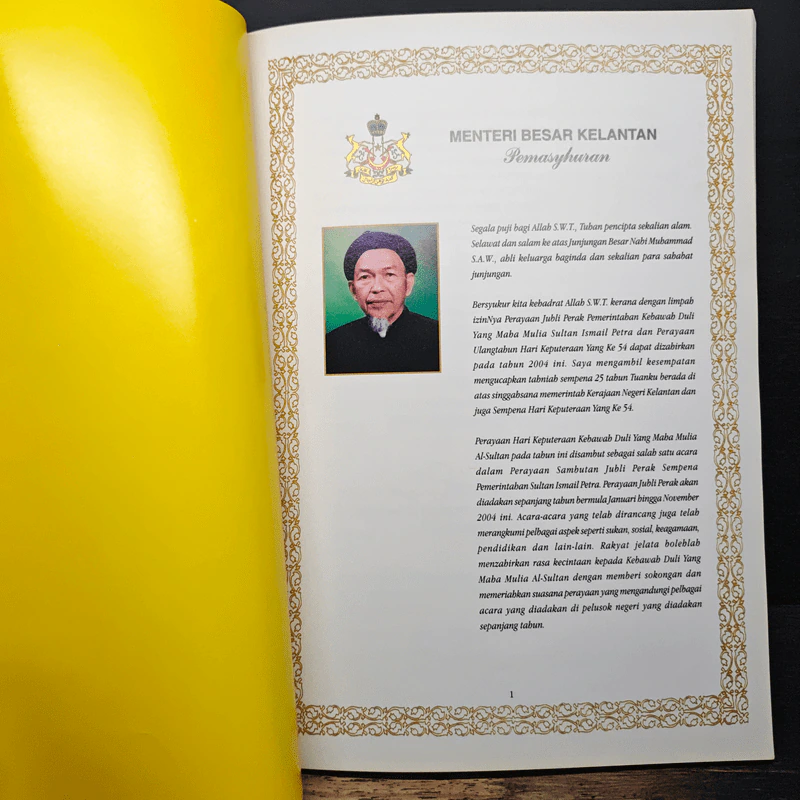 MENTERI BESAR KELANTAN
Pemasyhuran
Segala puji bagi Allah S.W.T., Tuhan pencipta sekalian alam.
Selawat dan salam ke atas Junjungan Besar Nabi Muhammad
S.A.W., ahli keluarga baginda dan sekalian para sahabat
junjungan.
Bersyukur kita kehadrat Allah S.W.T. kerana dengan limpah
izinNya Perayaan Jubli Perak Pemerintahan Kebawah Duli
Yang Maha Mulia Sultan Ismail Petra dan Perayaan
Ulangtahun Hari Keputeraan Yang Ke 54 dapat dizahirkan
pada tahun 2004 ini. Saya mengambil kesempatan
mengucapkan tahniah sempena 25 tahun Tuanku berada di
atas singgahsana memerintah Kerajaan Negeri Kelantan dan
juga Sempena Hari Keputeraan Yang Ke 54.
Perayaan Hari Keputeraan Kebawah Duli Yang Maha Mulia
Al-Sultan pada tahun ini disambut sebagai salah satu acara
dalam Perayaan Sambutan Jubli Perak Sempena
Pemerintahan Sultan Ismail Petra. Perayaan Jubli Perak akan
diadakan sepanjang tahun bermula Januari hingga November
2004 ini. Acara-acara yang telah dirancang juga telah
merangkumi pelbagai aspek seperti sukan, sosial, keagamaan,
pendidikan dan lain-lain. Rakyat jelata bolehlah
menzahirkan rasa kecintaan kepada Kebawah Duli Yang
Maha Mulia Al-Sultan dengan memberi sokongan dan
memeriahkan suasana perayaan yang mengandungi pelbagai
acara yang diadakan di pelusok negeri yang diadakan
sepanjang tahun.
1